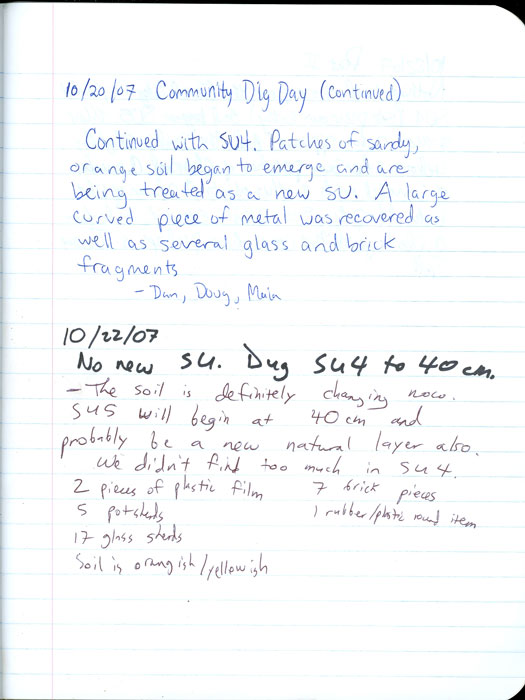 10/20/07 Community Dig Day (continued)
Continued with SU4. Patches of sandy,
orange soil began to emerge and are
being treated as a new SU. A large
curved piece of metal was recovered as
well as several glass and brick
fragments
- Dan, Doug, Main
10/22/07
No new SU. Dug SU4 to 40cm.
- The soil is definitely changing now.
SU5 will begin at 40cm and
probably be a new natural layer also.
We didn't find too much in SU4.
2 pieces of plastic film
7 brick pieces
5 potsherds
1 rubber/plastic round item
17 glass sherds
Soil is orangish/yellowish